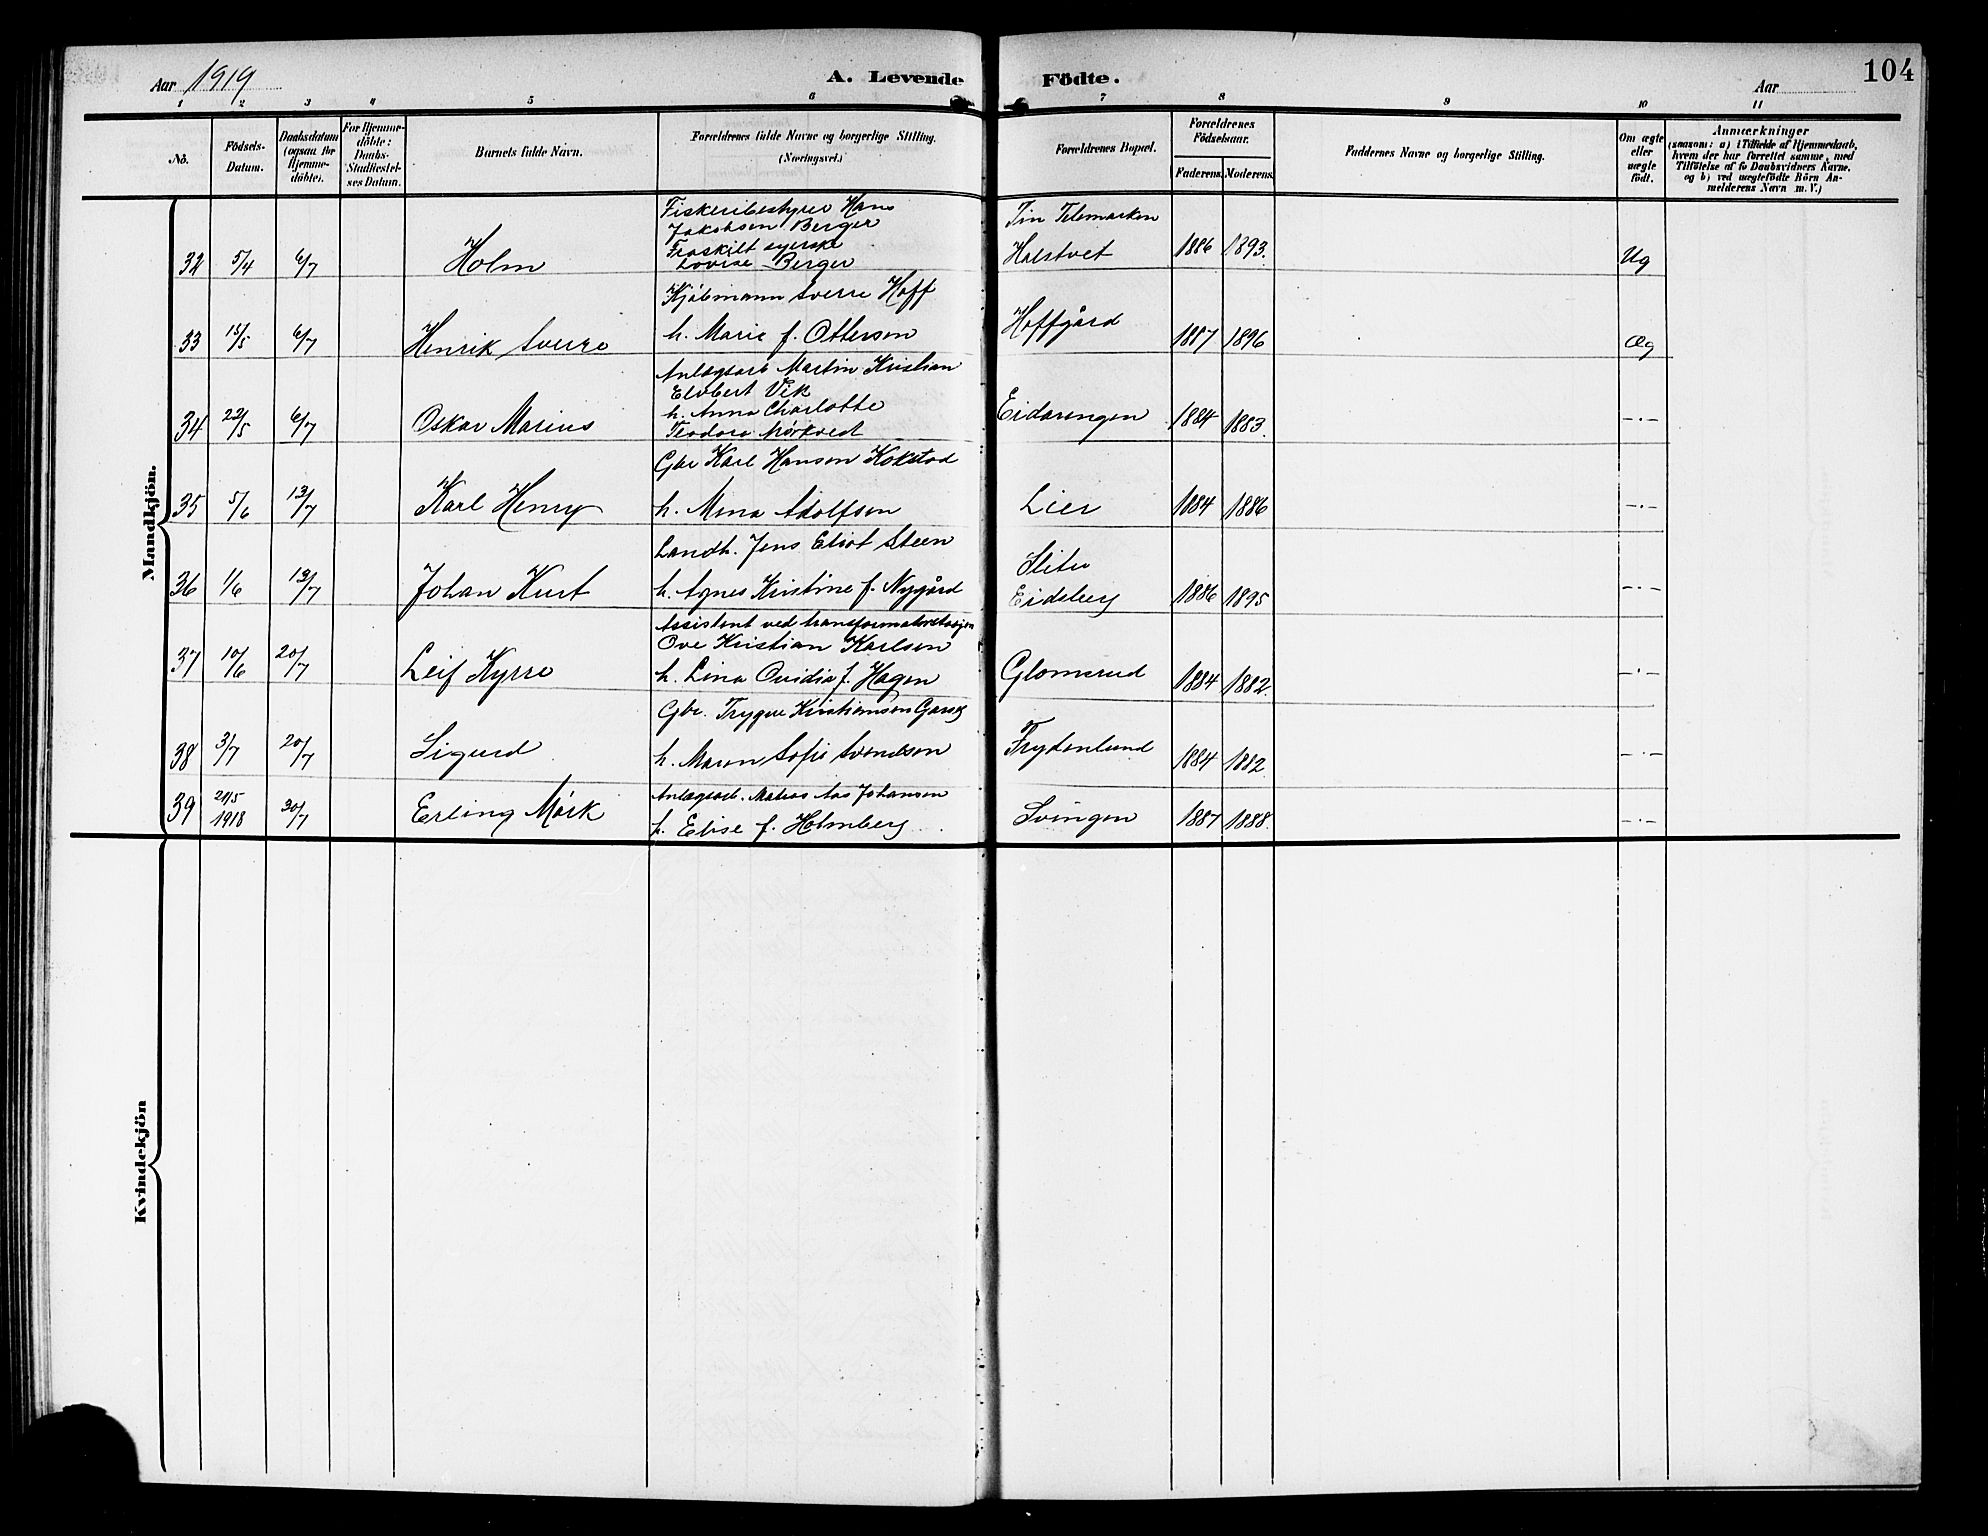 104
Aar 1919
A. Levende Födte.
Aar
1 2 3 4 5 6 7 8 9 10 11
No.
Födsels-Datum.
Daabsdatum (ogsaa for Hjemme-döbte).
For Hjemme-döbte: Daabs-Stadfæstel-ses Datum.
Barnets fulde Navn.
Forældrenes fulde Navne og borgerlige Stilling. (Næringsvei.)
Forældrenes Bopæl.
Forældrenes Födselsaar.
Faderens. Moderens.
Faddernes Navne og borgerlige Stilling.
Om ægte eller uægte födt.
Anmærkninger
(saasom: a) i Tilfælde af Hjemmedaab, hvem der har forrettet samme, med Tilföielse af to Daabsvidners Navne, og b) ved uægtefödte Börn An-melderens Navn m. V.)
Mandkjön.
Fiskeribestyrer Hans
Jakobsen Berger
Fraskilt syerske
32 5/4 6/7 Holm Lovise Berger
Tin Telemarken
Halstvet 1886 1893. Ug
Kjöbmann Sverre Hoff
33 15/5 6/7 Henrik Sverre h. Marie f. Ottersen Hoffgård 1887 1896 Æg
Anlægsarb Martin Kristian
Elvbert Vik
h. Anna Charlotte
34 22/5 6/7 Oskar Marius Teodora Mörkved Eidarengen 1884 1883. -.-
Gbr Karl Hansen Kokstad
35 5/6 13/7 Karl Henry h. Mena Adolfsen Lier 1884 1886 -.-
Landh. Jens Eliot Steen
36 1/6 13/7 Johan Kurt h. Agnes Kristine f. Nygård
Slitu
Eidsberg 1886 1895 -.-
Assistent ved transformatorstasjon
Ove Kristian Karlsen
37 10/6 20/7 Leif Kyrre h. Lina Ovidia f. Hagen Glomsrud 1884 1882. -.-
Gbr. Trygve Kristiansen
38 3/7 20/7 Sigurd h. Maren Sofie Svendsen Frydenlund 1884 1882. -.-
Anlægsarb. Matias Aas Johansen
39 20/5 1918 30/7 Erling Mörk h. Elise f. Holmberg Svingen 1887 1888. -.-
Kvindekjön